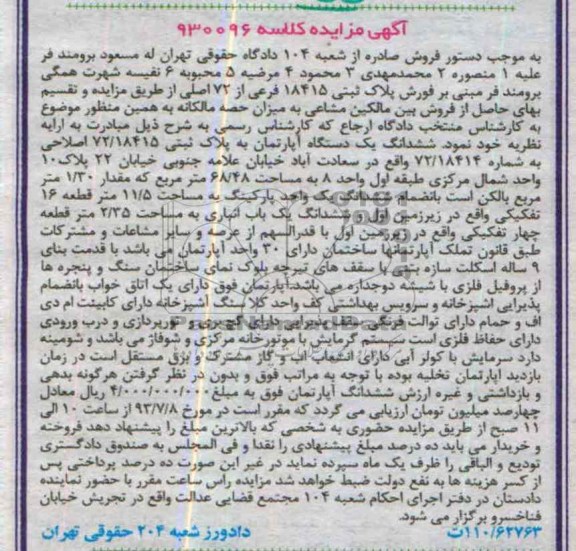 آگهی مزایده کلاسه ۹۳۰۰۹۶
به موجب دستور فروش صادره از شعبه ۱۰۴ دادگاه حقوقی تهران له مسعود برومند فر
علیه ۱ منصوره ۲ محمدمهدی ۳ محمود ۴ مرضیه ۵ محبوبه ۶ نفیسه شهرت همگی
برومند فر مبنی بر فورش پلاک ثبتی ۱۸۴۱۵ فرعی از ۷۲ اصلی از طریق مزایده و تقسیم
بهای حاصل از فروش بین مالکین مشاعی به میزان حصه مالکانه به همین منظور موضوع
به کارشناس منتخب دادگاه ارجاع که کارشناس رسمی به شرح ذیل مبادرت به ارایه
نظریه خود نمود. ششدانگ یک دستگاه آپارتمان به پلاک ثبتی ۷۲/۱۸۴۱۵ اصلاحی
به شماره ۷۲/۱۸۴۱۴ واقع در سعادت آباد خیابان علامه جنوبی خیابان ۲۲ پلاک ۱۰
واحد شمال مرکزی طبقه اول واحد ۸ به مساحت ۶۸/۴۸ متر مربع که مقدار ۱/۳۰ متر
مربع بالکن است بانضمام ششدانگ یک واحد پارکینگ به مساحت ۱۱/۵ متر قطعه ۱۶
تفکیکی واقع در زیرزمین اول و ششدانگ یک باب انباری به مساحت ۲/۳۵ متر قطعه
چهار تفکیکی واقع در زیرزمین اول با قدرالسهم از عرصه و سایر مشاعات و مشترکات
طبق قانون تملک آپارتمانها ساختمان دارای ۳۰ واحد آپارتمان می باشد با قدمت بنای
۹ ساله اسکلت سازه بتنی با سقف های تیرچه بلوک نمای ساختمان سنگ و پنجره ها
از پروفیل فلزی با شیشه دوجداره می باشد. آپارتمان فوق دارای یک اتاق خواب بانضمام
پذیرایی اشپزخانه و سرویس بهداشتی کف واحد کلا سنگ آشپزخانه دارای کابینت ام دی
اف و حمام دارای توالت فرنگی سقف پذیرایی دارای گچبری و نورپردازی و درب ورودی
دارای حفاظ فلزی است سیستم گرمایش با موتورخانه مرکزی و شوفاژ می باشد و شومینه
دارد سرمایش با کولر آبی دارای انشعاب آب و گاز مشترک و برق مستقل است در زمان
بازدید آپارتمان تخلیه بوده با توجه به مراتب فوق و بدون در نظر گرفتن هرگونه بدهی
و بازداشتی و غیره ارزش ششدانگ آپارتمان فوق به مبلغ ۴/۰۰۰/۰۰۰/۰۰۰ ریال معادل
چهارصد میلیون تومان ارزیابی می گردد که مقرر است در مورخ ۹۳/۷/۸ از ساعت ۱۰ الی
۱۱ صبح از طریق مزایده حضوری به شخصی که بالاترین مبلغ را پیشنهاد دهد فروخته
و خریدار می باید ده درصد مبلغ پیشنهادی را نقدا و فی المجلس به صندوق دادگستری
تودیع و الباقی را ظرف یک ماه سپرده نماید در غیر این صورت ده درصد پرداختی پس
از کسر هزینه ها به نفع دولت ضبط خواهد شد مزایده راس ساعت مقرر با حضور نماینده
دادستان در دفتر اجرای احکام شعبه ۱۰۴ مجتمع قضایی عدالت واقع در تجریش خیابان
فناخسرو برگزار می شود.
۱۱۰/۶۲۷۶۳ت دادورز شعبه ۲۰۴ حقوقی تهران